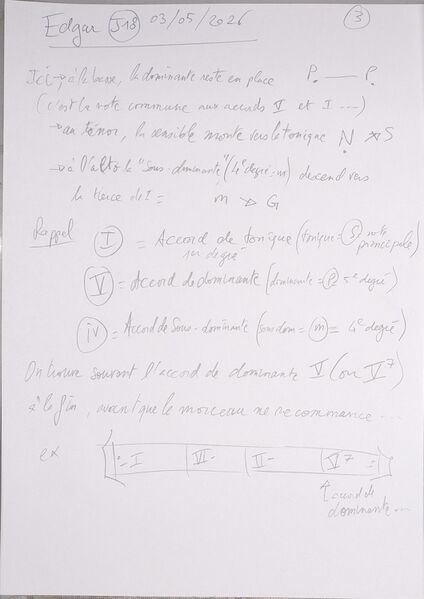 Edgar J18 03/05/2026 3
Ici → à la basse, la dominante reste en place P. — P.
(c'est la note commune aux accords V et I ...)
→ au ténor, la sensible monte vers la tonique N → S
→ à l'alto la "sous-dominante" (4e degré = m) descend vers
la tierce de I = m → G
Rappel I = Accord de tonique (tonique = S note principale)
1er degré
V = Accord de dominante (dominante = P 5e degré)
iv = Accord de sous-dominante (sous dom = m = 4e degré)
On trouve souvent l'accord de dominante V (ou V7)
à la fin, avant que le morceau ne recommence ...
ex I VI- II- V7
↑ accord de
dominante ...